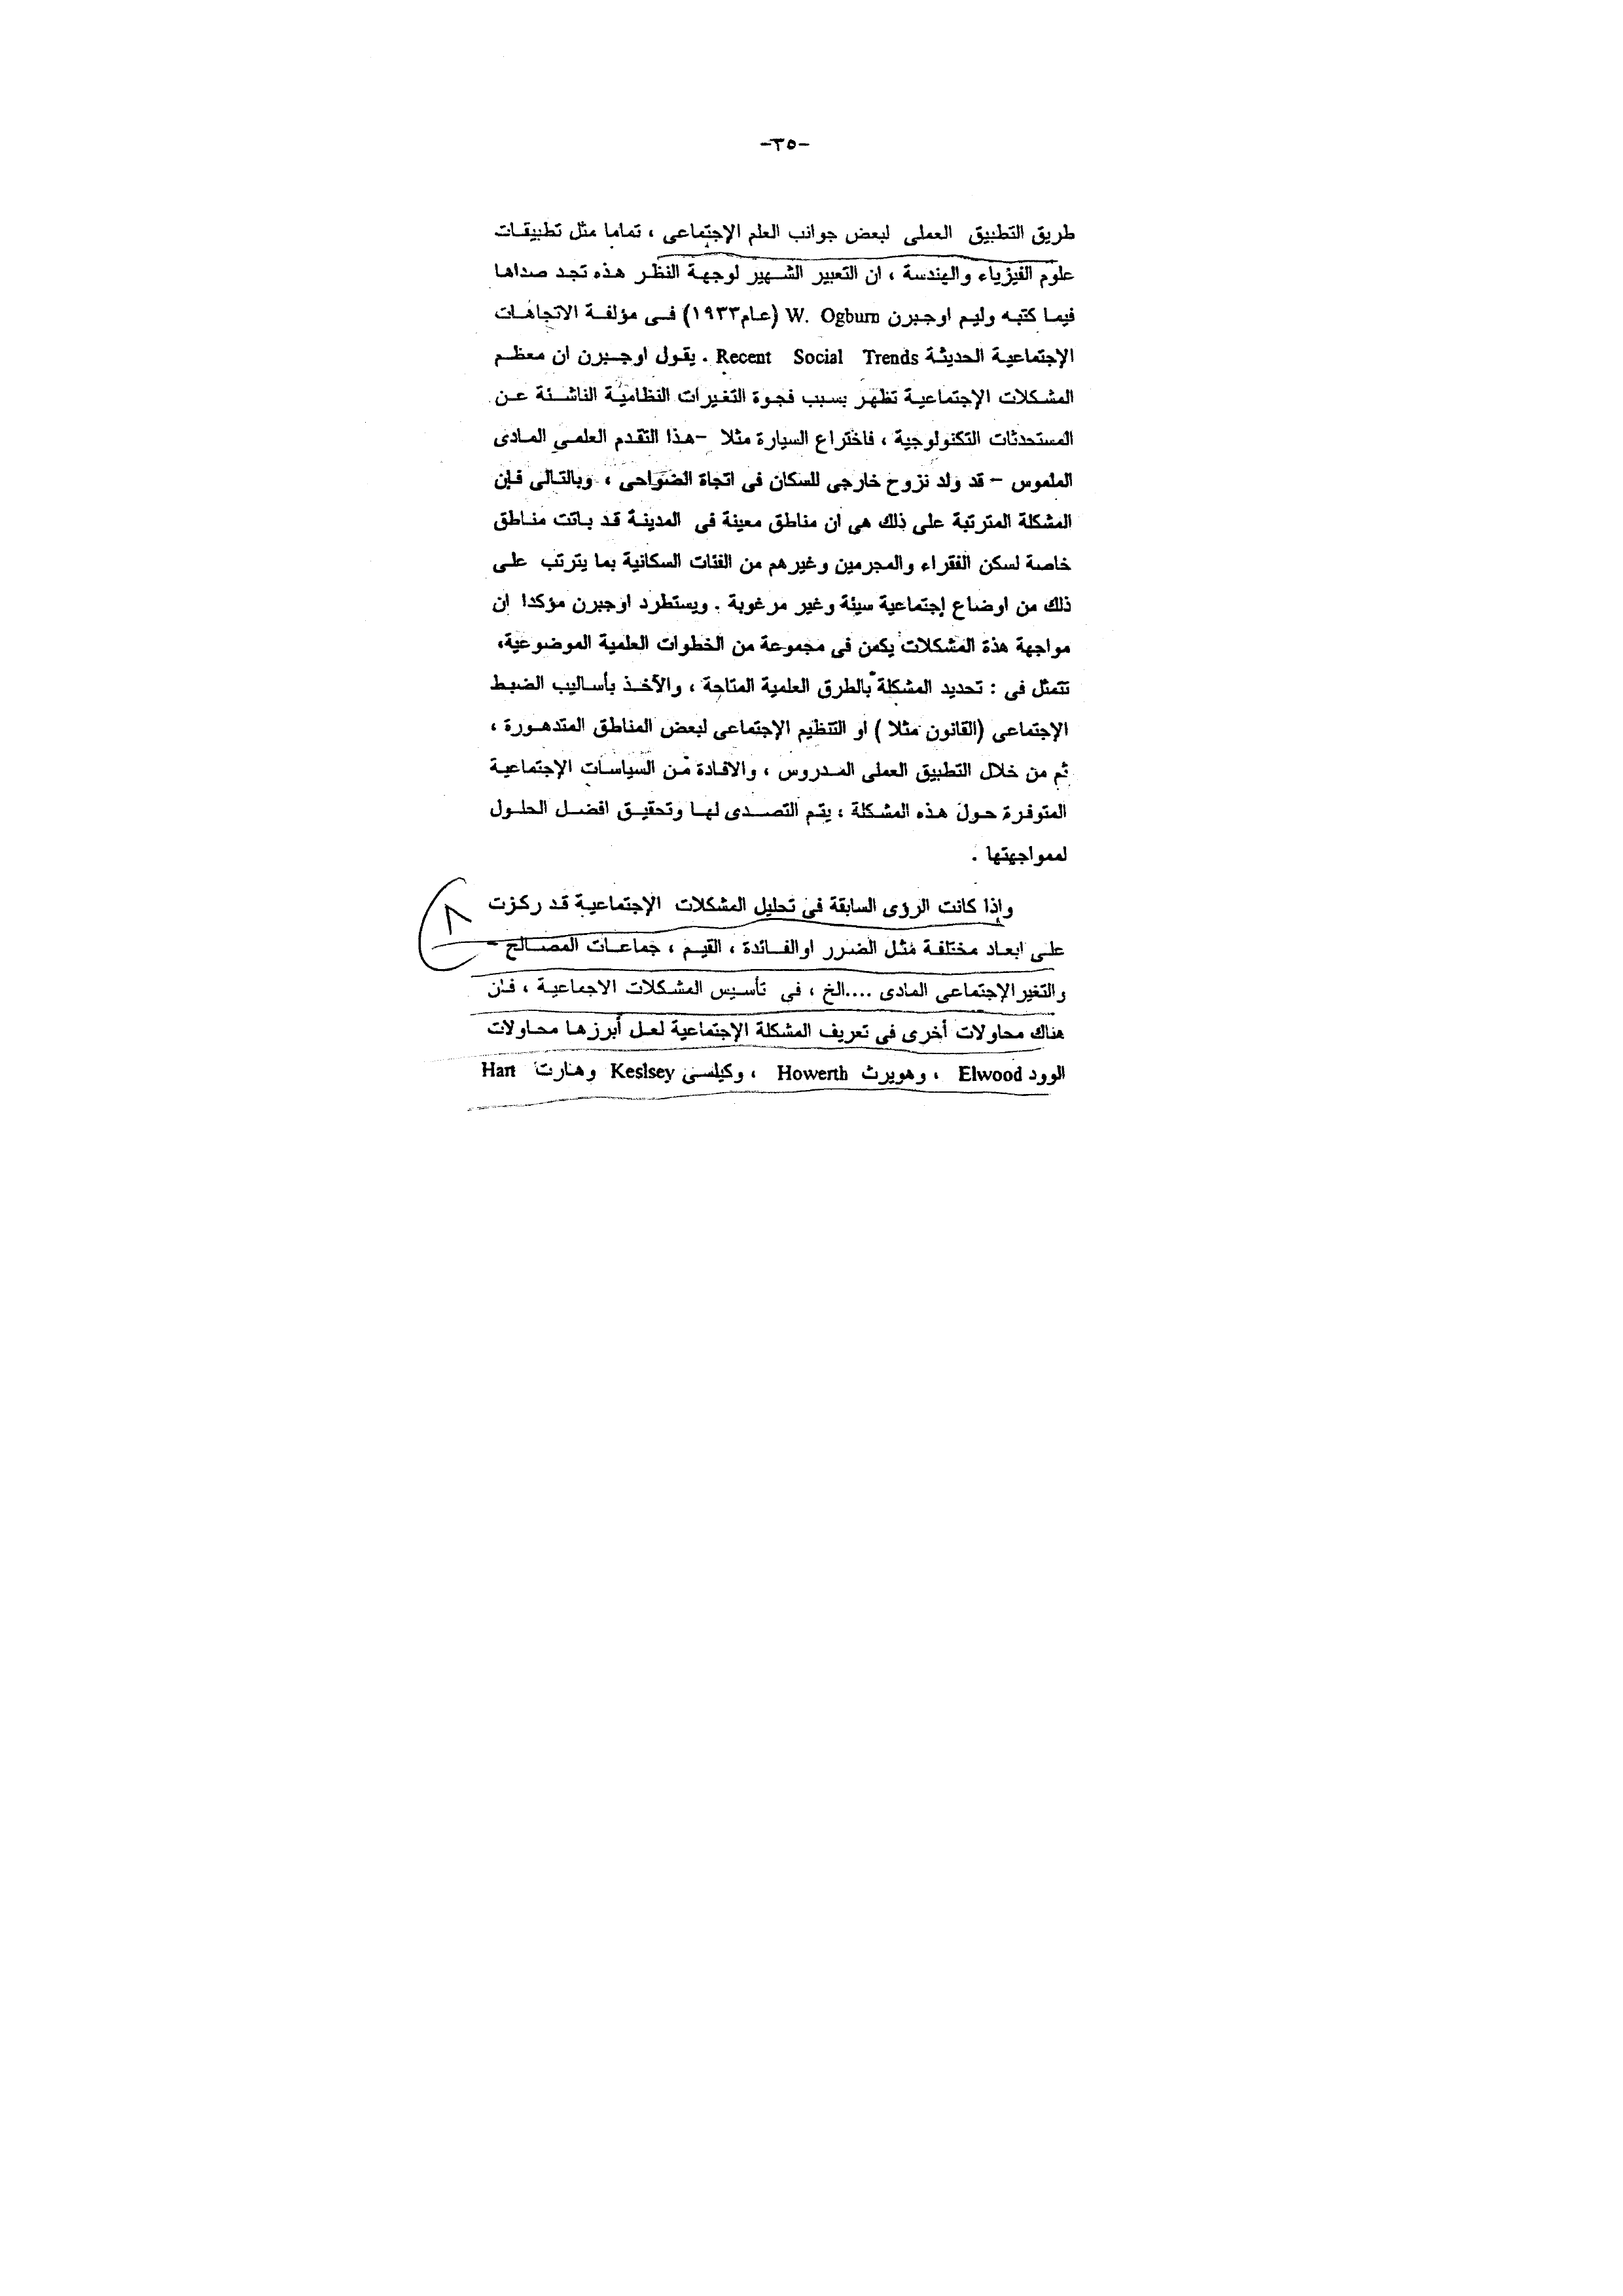 -٣٥-
طريق التطبيق العملى لبعض جوانب العلم الإجتماعى ، تماما مثل تطبيقات
علوم الفيزياء والهندسة ، ان التعبير الشهير لوجهة النظر هذه تجد صداها
فيما كتبه وليم اوجبرن W. Ogburn (عام١٩٣٣) فى مؤلفة الاتجاهات
الإجتماعية الحديثة Recent Social Trends . يقول اوجبرن ان معظم
المشكلات الإجتماعية تظهر بسبب فجوة التغيرات النظامية الناشئة عن
المستحدثات التكنولوجية ، فاختراع السيارة مثلا -هذا التقدم العلمى المادى
الملموس - قد ولد نزوح خارجى للسكان فى اتجاة الضواحى ، وبالتالى فإن
المشكلة المترتبة على ذلك هى ان مناطق معينة فى المدينة قد باتت مناطق
خاصة لسكن الفقراء والمجرمين وغيرهم من الفئات السكانية بما يترتب على
ذلك من اوضاع إجتماعية سيئة وغير مرغوبة . ويستطرد اوجبرن مؤكدا ان
مواجهة هذة المشكلات يكمن فى مجموعة من الخطوات العلمية الموضوعية،
تتمثل فى : تحديد المشكلة بالطرق العلمية المتاحة ، والآخذ بأساليب الضبط
الإجتماعى (القانون مثلا ) او التنظيم الإجتماعى لبعض المناطق المتدهورة ،
ثم من خلال التطبيق العملى المدروس ، والافادة من السياسات الإجتماعية
المتوفرة حول هذه المشكلة ؛ يتم التصدى لها وتحقيق افضل الحلول
لممواجهتها .
وإذا كانت الرؤى السابقة فى تحليل المشكلات الإجتماعية قد ركزت
على ابعاد مختلفة مثل الضرر اوالفائدة ، القيم ، جماعات المصالح -
والتغير الإجتماعى المادى ....الخ ، فى تأسيس المشكلات الاجماعية ، فان
هناك محاولات أخرى فى تعريف المشكلة الإجتماعية لعل أبرزها محاولات
الوود Elwood ، وهويرث Howerth ، وكيلسى Keslsey وهارت Hart
٨